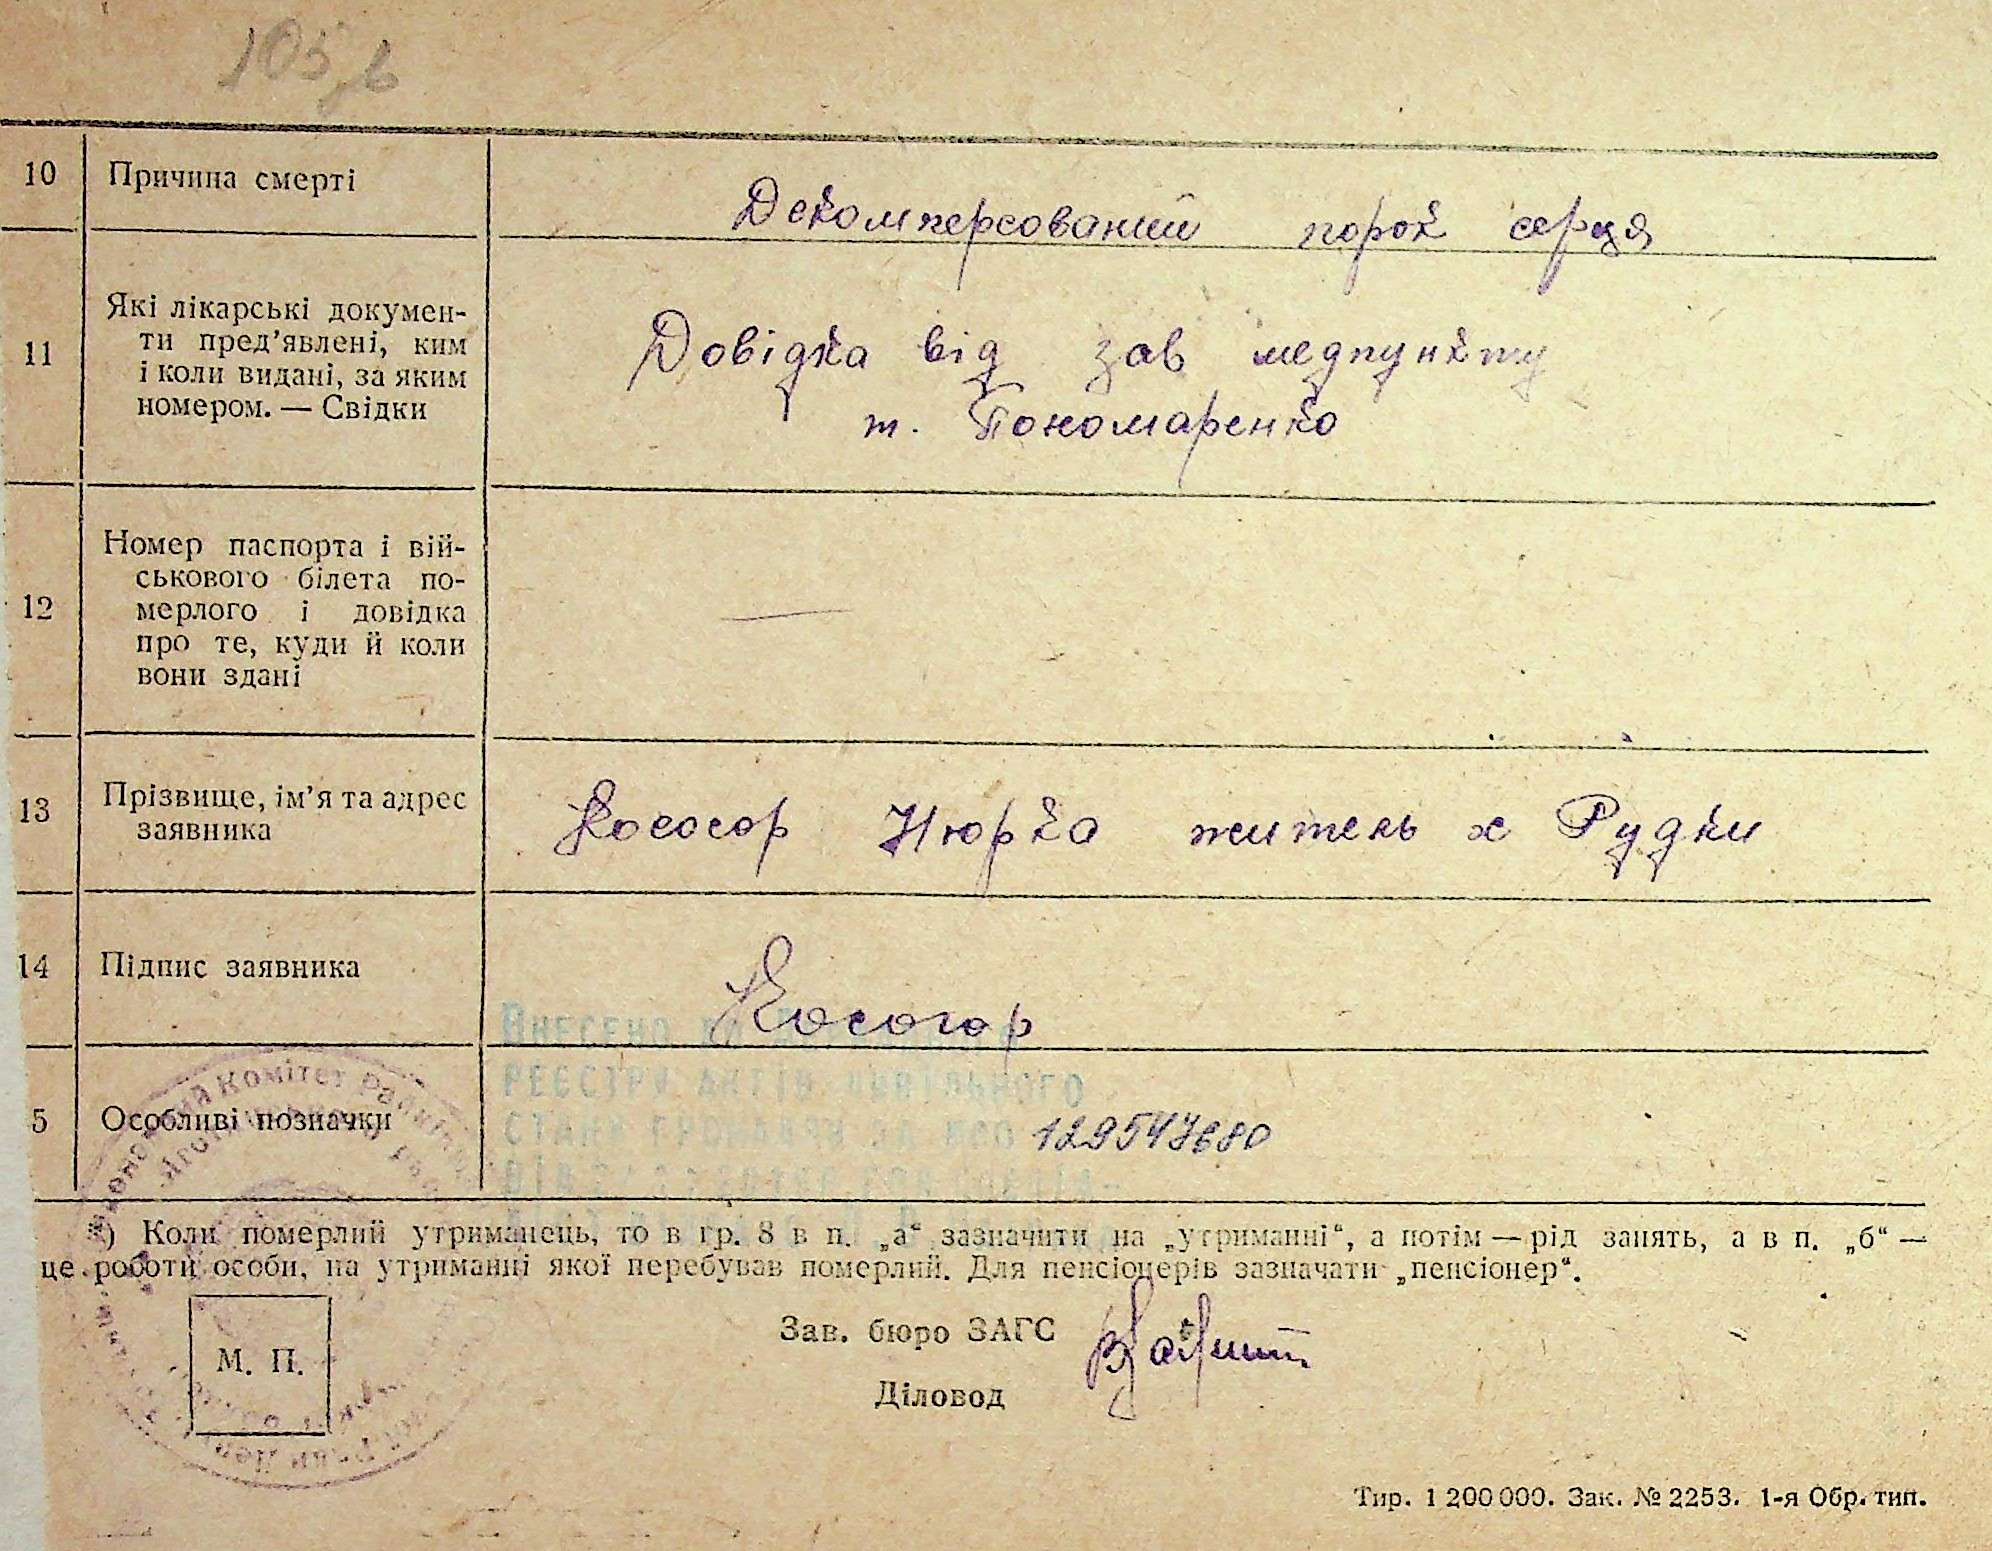 10 Причина смерті Декомперсований порок серця
11 Які лікарські докумен-
ти пред’явлені, ким
і коли видані, за яким
номером. — Свідки
Довідка від зав медпункту
т. Пономаренко
12 Номер паспорта і вій-
ськового білета по-
мерлого і довідка
про те, куди й коли
вони здані
—
13 Прізвище, ім’я та адрес
заявника
Кососор Нюрка житель х Рудки
14 Підпис заявника Косогор
Внесено до Державного
реєстру актів цивільного
стану громадян за №
5 Особливі позначки 129547680
*) Коли померлий утриманець, то в гр. 8 в п. „а“ зазначити на „утриманні“, а потім — рід занять, а в п. „б“ —
це роботи особи, на утриманні якої перебував померлий. Для пенсіонерів зазначати „пенсіонер“.
М. П.
Зав. бюро ЗАГС
Діловод
Тир. 1 200 000. Зак. № 2253. 1-я Обр. тип.